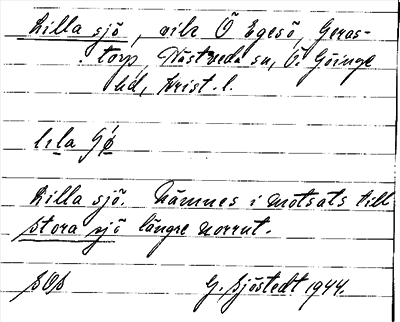 Lilla sjö, vik Ö Egesö, Geras-
torp, Hästveda sn, Ö. Göinge
hd, Krist. l.
lıla ʃø
Lilla sjö. Nämnes i motsats till
Stora sjö längre norrut.
SOS G. Sjöstedt 1944.